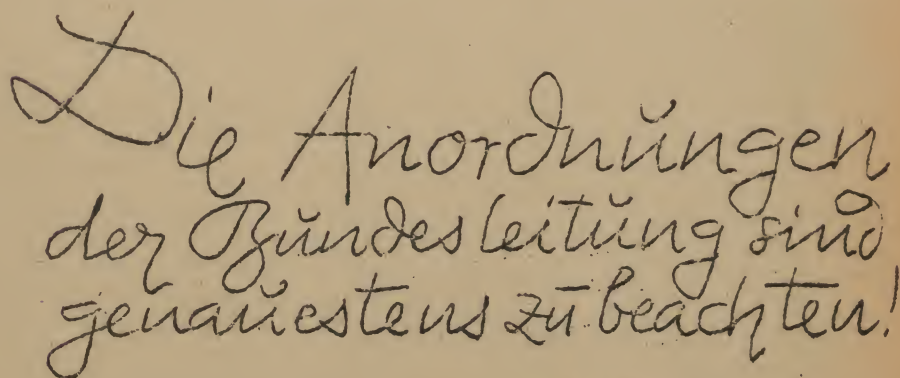 Die Anordnungen
der Bundesleitung sind
genauestens zu beachten!